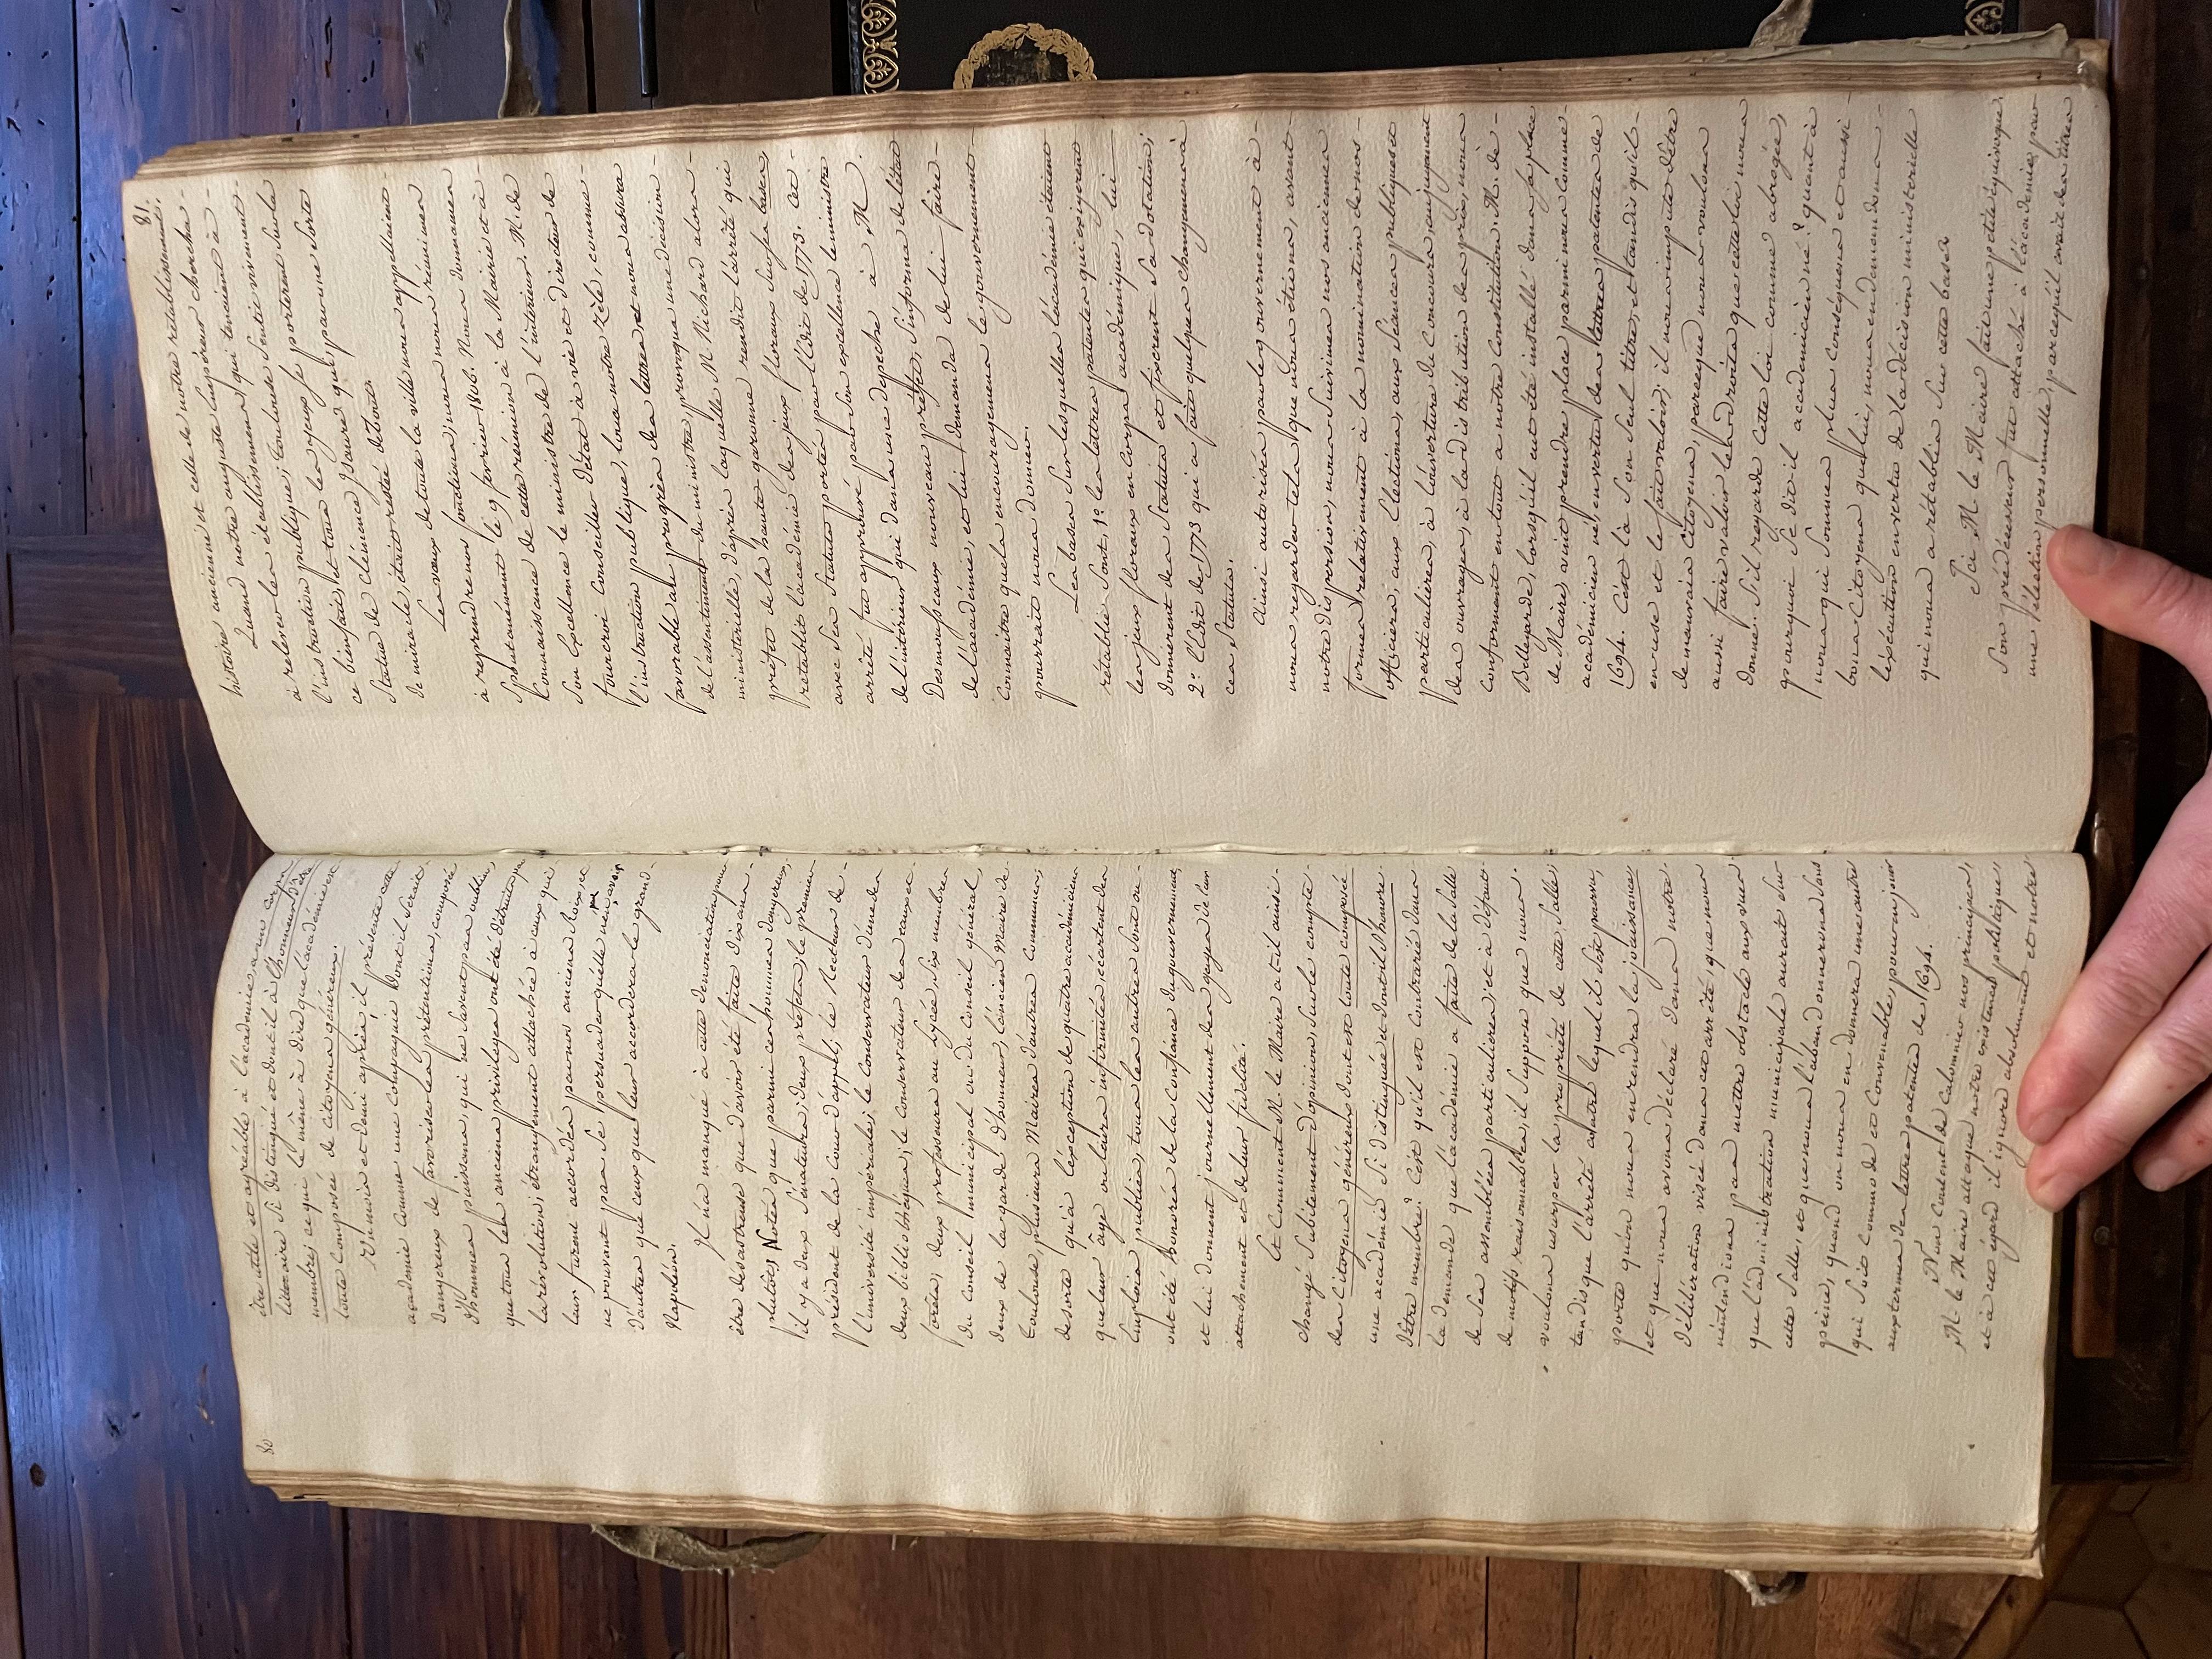 80
être utile et agréable à l'académie, à un corps
littéraire si distingué et dont il à l'honneur D'être
membre; ce qui le mène à dire que l'académie est
toute composée de citoyens généreux.
Un mois et demi après, il présente cette
académie comme une compagnie dont il serait
dangereux de favoriser les prétentions, composée
d'hommes puissans, qui ne savent pas oublier,
que tous les anciens privilèges ont été détruits par
la révolution; étrangement attachés à ceux qui
leur furent accordés par nos anciens Rois, et
ne pouvant pas se persuader qu'elle n'en avoir
d'autres que ceux que leur accordera le grand
Napoléon.
Il n'a manqué à cette dénonciation pour
être désastreuse que d'avoir été faite dix ans
plutôt. Notez que parmi ces hommes dangereux,
il y a deux Sénateurs; deux préfets; le premier
président de la Cour d'appel; le Recteur de
l'université impériale; le conservateur d'une des
deux bibliothèques; le conservateur des eaux et
forêts; deux professeurs au lycée; Six membres
du Conseil Municipal ou du Conseil général;
deux de la garde d'honneur; l'ancien Maire de
Toulouse, plusieurs Maires d'autres Communes,
de sorte qu'à l'exception de quatre académiciens
que leur âge ou leurs infirmités, écartent des
emplois publics, tous les autres sont ou
ont été honorés de la confiance du gouvernement,
et lui donnent journellement des gages de leur
attachement et de leur fidélité.
Et Comment M. le Maire a-t-il ainsi
changé subitement d'opinion, sur le compte
des Citoyens généreux dont est toute composée
une académie Si distinguée et dont il S'honore
d'être membre? C'est qu'il est contrarié dans
la demande que l'académie a faite de la salle
de ses assemblées particulières; et à défaut
de motifs raisonnables, il suppose que nous
voulons usurper la propriété de cette Salle
tandis que l'arrêté contre lequel il s'est pourvu,
porte qu'on nous en rendra la jouissance
et que nous avons déclaré dans notre
délibération visée dans cet arrêté, que nous
n'entendions pas mettre obstacle aux vues
que l'administration municipale aurait sur
cette Salle, et que nous l'abandonnerons sans
peine, quand on nous en donnera une autre
qui soit commode et Convenable, pour en jouir
aux termes des lettres patentes de 1694.
Non content de calomnier nos principes,
M. le Maire attaque notre existence politique,
et à cet égard il ignore absolument et notre
81.
histoire ancienne et celle de notre rétablissement.
Quand notre auguste Empereur chercha
à relever les établissemens qui tenaient à
l'instruction publique; Toulouse sentit vivement
ce bienfait, et tous les yeux se portèrent sur la
Statue de Clémence Isaure qui, par une sorte
de miracle, était restée debout.
Les vœux de toute la ville nous appellaient
à reprendre nos fonctions; nous nous réunimes
spontanément le 9 février 1806. Nous donnames
Connaissance de cette réunion à la Mairie et à
Son Excellence le ministre de l'intérieur. M. de
fourcroi Conseiller d'état à vie et directeur de
l'instruction publique, loua notre zèle, comme
favorable au progrès des lettres, et nous assura
de l'assentiment du ministre, provoqua une décision
ministérielle, d'après laquelle M. Richard alors
préfet de la haute garonne rendit l'arrêté qui
rétablit l'académie des jeux floraux sur ses bases
avec ses Statuts portés par l'édit de 1773. Cet
arrêté fut approuvé par Son excellence le ministre
de l'intérieur qui dans une dépêche à M.
Desmousseaux nouveau préfet, s'informa de l'état
de l'académie, et lui demanda de lui faire
connaitre quels encouragemens le gouvernement
pourrait nous donner.
Les bases sur lesquelles l'académie étaient
rétablie sont, 1º les lettres patentes qui érigèrent
les jeux floraux en Corps académique, lui
donnèrent des Statuts et fixèrent sa dotation;
2º l'édit de 1773 qui a fait quelques changemens à
ces Statuts.
Ainsi autorisés par le gouvernement à
nous regarder tels que nous étions, avant
notre dispersion, nous suivimes nos anciennes
formes relativement à la nomination de nos
officiers, aux élections, aux séances publiques et
particulières, à l'ouverture du Concours, au jugement
des ouvrages, à la distribution des prix, nous
conformant en tout à notre Constitution. M. de
Bellegarde, lorsqu'il eut été installé dans la place
de Maire, vint prendre place parmi nous comme
académicien né en vertu des lettres patentes de
1694. C'est là son seul titre, et tandis qu'il
en use et le fait valoir, il nous impute d'être
de mauvais citoyens, parceque nous voulons
aussi faire valoir les droits que cette loi nous
donne. S'il regarde cette loi comme abrogée,
pourquoi se dit-il académicien né? quant à
nous qui sommes plus conséquens et aussi
bons Citoyens que lui, nous en demandons
l'exécution en vertu de la décision ministérielle
qui nous a rétablis sur cette base.
Ici M. le Maire fait une petite équivoque;
Son prédécesseur fut attaché à l'académie, par
une élection personnelle, parcequ'il avait des titres